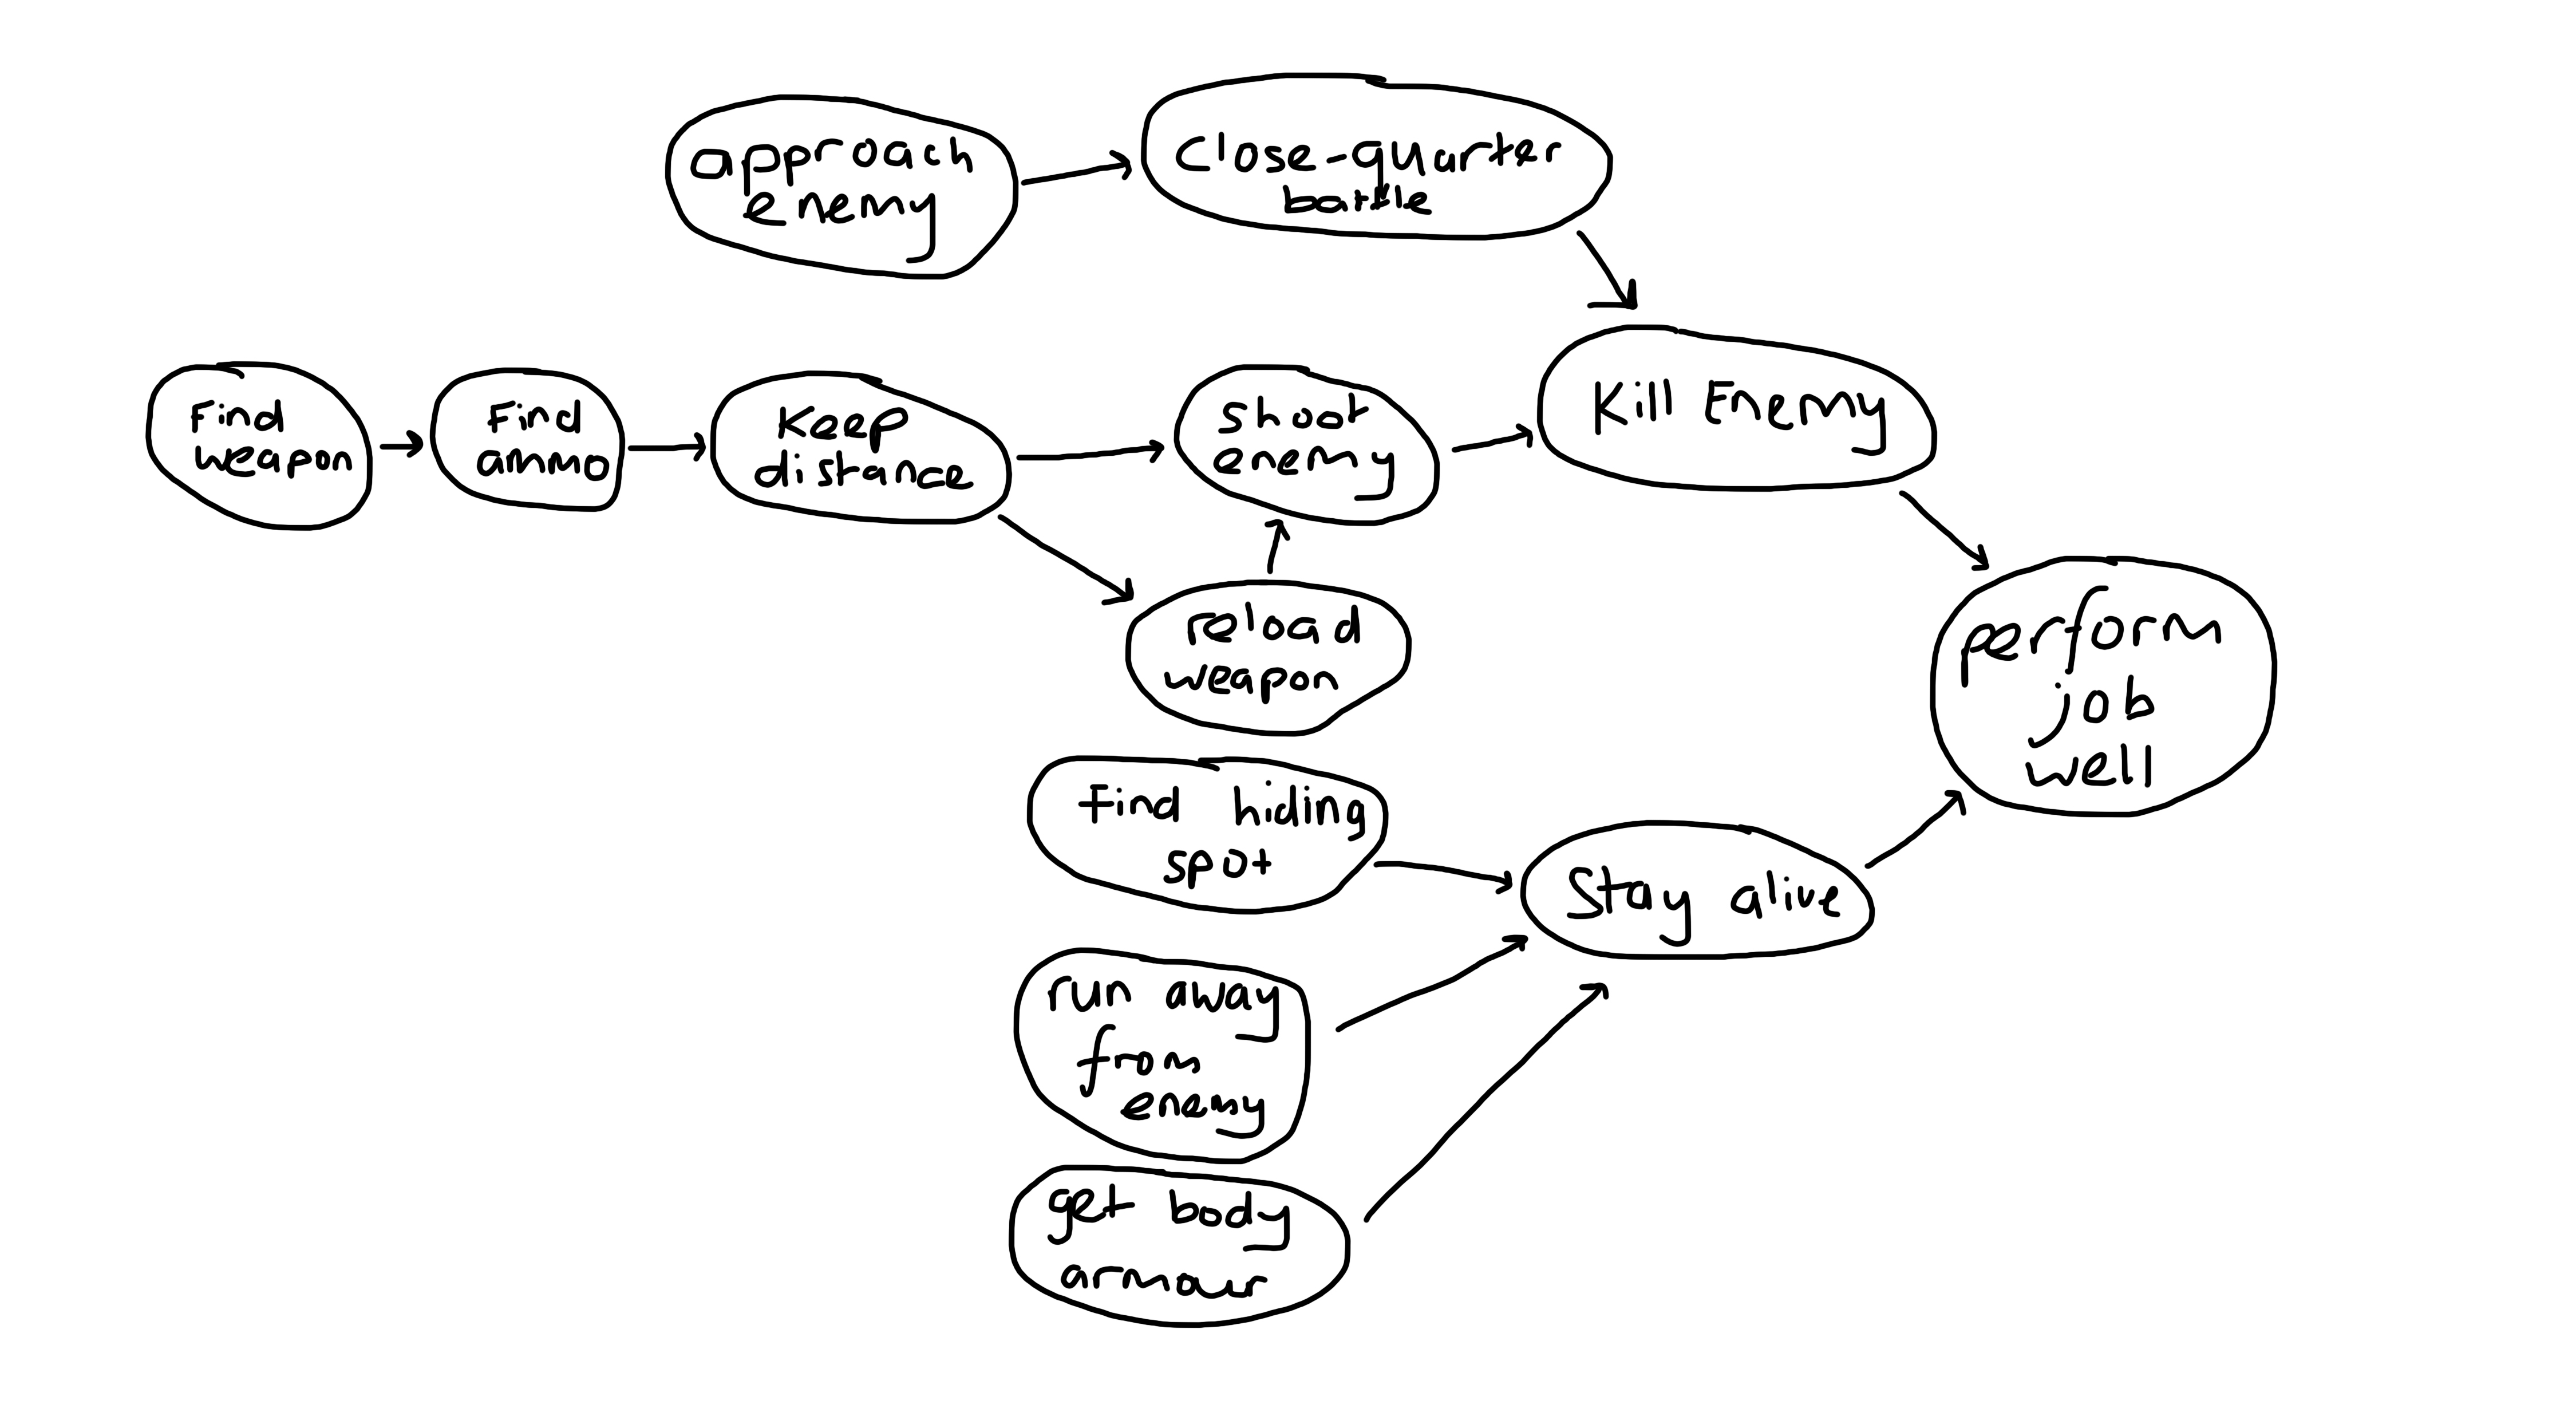 approach
enemy
Close-quarter
battle
Find
weapon
Find
ammo
Keep
distance
shoot
enemy
Kill Enemy
reload
weapon
perform
job
well
Find hiding
spot
Stay alive
run away
from
enemy
get body
armour